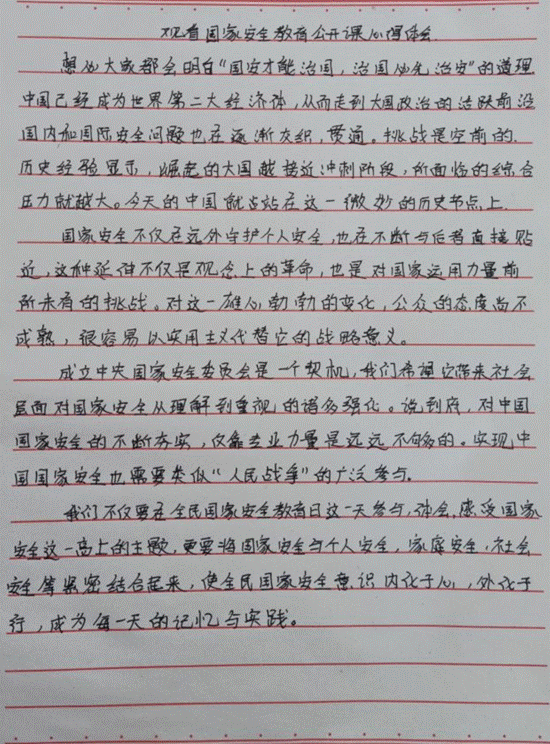 观看国家安全教育公开课心得体会
想必大家都会明白“国安才能治国，治国必先治安”的道理
中国已经成为世界第二大经济体，从而走到大国政治的活跃前沿
国内和国际安全问题也在逐渐交织，贯通。挑战是空前的.
历史经验显示，崛起的大国越接近冲刺阶段，所面临的综合
压力就越大。今天的中国就占站在这一微妙的历史节点上.
国家安全不仅在远外守护个人安全，也在不断与后者直接贴
近，这种延伸不仅是观念上的革命，也是对国家运用力量前
所未有的挑战。对这一雄心勃勃的变化，公众的态度尚不
成熟，很容易以实用主义代替它的战略意义。
成立中央国家安全委员会是一个契机，我们希望它带来社会
层面对国家安全从理解到重视的诸多强化。说到底，对中国
国家安全的不断夯实，仅靠专业力量是远远不够的。实现中
国国家安全也需要类似“人民战争”的广泛参与.
我们不仅要在全民国家安全教育日这一天参与，体会，感受国家
安全这一高上的主题，更要将国家安全与个人安全，家庭安全，社会
安全等紧密结合起来，使全民国家安全意识内化于心，外化于
行，成为每一天的记忆与实践。